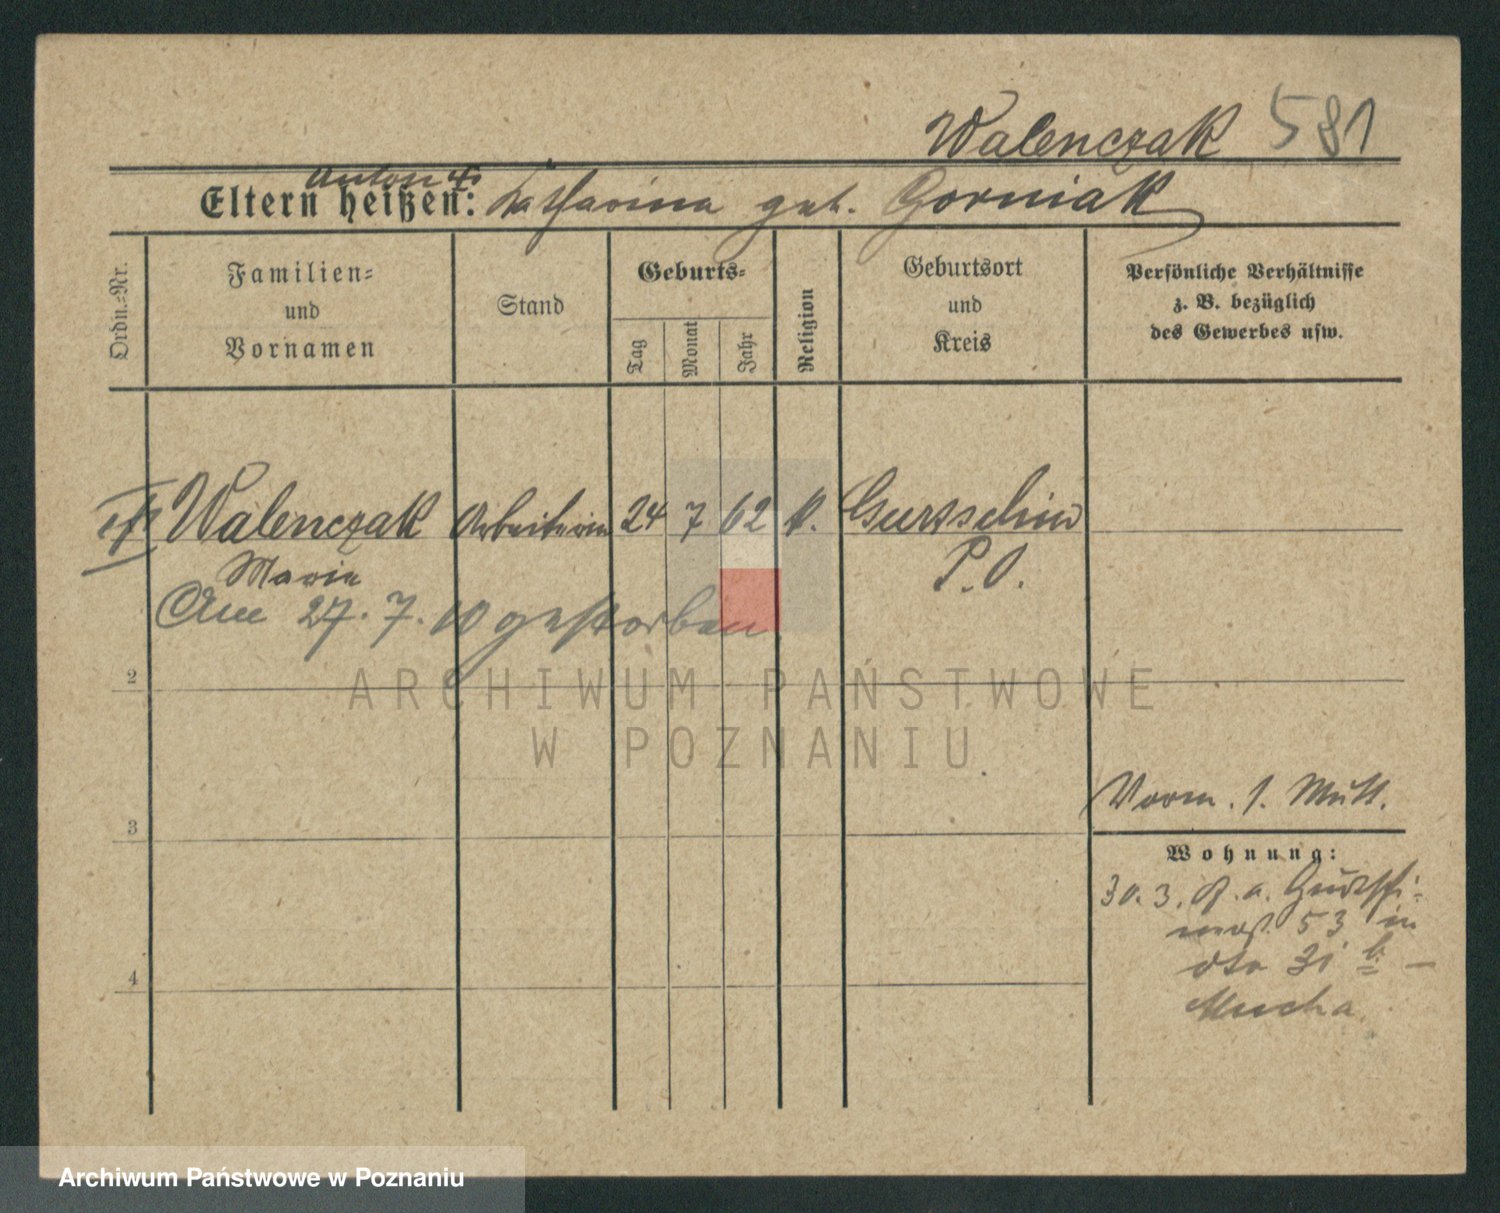 Walenczak 581
Anton u.
Eltern heißen: Katharina geb. Gorniak
Ordn.-Nr.
Familien-
und
Vornamen
Stand
Geburts-
Tag
Monat
Jahr
Religion
Geburtsort
und
Kreis
Persönliche Verhältnisse
z. B. bezüglich
des Gewerbes usw.
Walenczak Arbeiterin 24 7 62 k. Gurtschin
Marie P. O.
Am 27. 7. 10 gestorben
2
3
4
Vorm. s. Mutt.
Wohnung:
30. 3. a. Gurtschi-
53 in
dto 31 b
Mucha
ARCHIWUM PAŃSTWOWE
W POZNANIU
Archiwum Państwowe w Poznaniu